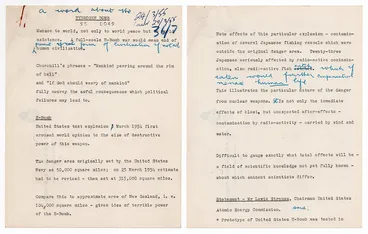 a word about the
HYDROGEN BOMB
Menace to world, not only to world peace but
existence. A full-scale H-Bomb war would mean end of
human civilisation.
Churchill's phrase - "Mankind peering around the rim
of hell"
and "If God should weary of mankind"
fully convey the awful consequences which political
failures may lead to.
H-Bomb
United States test explosion 1 March 1954 first
aroused world opinion to the size of destructive
power of this weapon.
The danger area originally set by the United States
Navy at 50,000 square miles; on 25 March 1954 estimate
had to be revised - then set at 315,000 square miles.
Compare this to approximate area of New Zealand, i.e.
100,000 square miles - gives idea of terrific power
of the H-Bomb.
Note effects of this particular explosion - contami-
nation of several Japanese fishing vessels which were
outside the original danger area. Twenty-three
Japanese seriously affected by radio-active contami-
nation, also radio-active fish which if
eaten would further
human life
This illustrates the particular nature of the danger
from nuclear weapons. It is not only the immediate
effects of blast, but unexpected after-effects -
contamination by radio-activity - carried by wind and
water.
Difficult to gauge exactly what total effects will be
a field of scientific knowledge not yet fully known -
about which eminent scientists differ.
Statement - Mr Lewis Strauss, Chairman United States
Atomic Energy Commission. said
" Prototype of United States H-Bomb was tested in